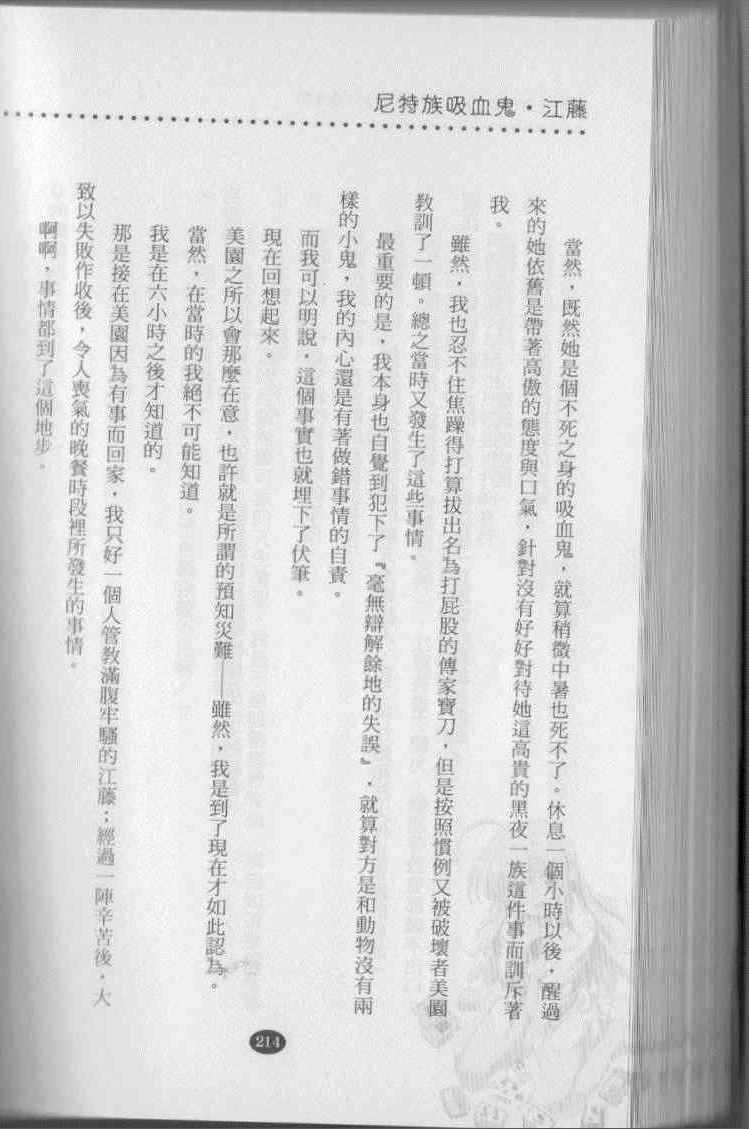 尼特族吸血鬼・江藤
當然，既然她是個不死之身的吸血鬼，就算稍微中暑也死不了。休息一個小時以後，醒過
來的她依舊是帶著高傲的態度與口氣，針對沒有好好對待她這高貴的黑夜一族這件事而訓斥著
我。
雖然，我也忍不住焦躁得打算拔出名為打屁股的傳家寶刀，但是按照慣例又被破壞者美園
教訓了一頓。總之當時又發生了這些事情。
最重要的是，我本身也自覺到犯下了『毫無辯解餘地的失誤』，就算對方是和動物沒有兩
樣的小鬼，我的內心還是有著做錯事情的自責。
而我可以明說，這個事實也就埋下了伏筆。
現在回想起來。
美園之所以會那麼在意，也許就是所謂的預知災難——雖然，我是到了現在才如此認為。
當然，在當時的我絕不可能知道。
我是在六小時之後才知道的。
那是接在美園因為有事而回家，我只好一個人管教滿腹牢騷的江藤；經過一陣辛苦後，大
致以失敗作收後，令人喪氣的晚餐時段裡所發生的事情。
啊啊，事情都到了這個地步。
214